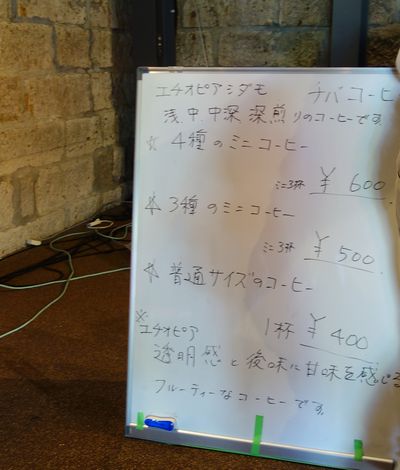 エチオピアシダモ チバコーヒ
浅、中、中深、深煎りのコーヒーです
☆ 4種のミニコーヒー
ミニ3杯 ¥600
☆ 3種のミニコーヒー
ミニ3杯 ¥500
☆ 普通サイズのコーヒー
1杯 ¥400
※
エチオピア
透明感と後味に甘味を感じる
フルーティーなコーヒーです。